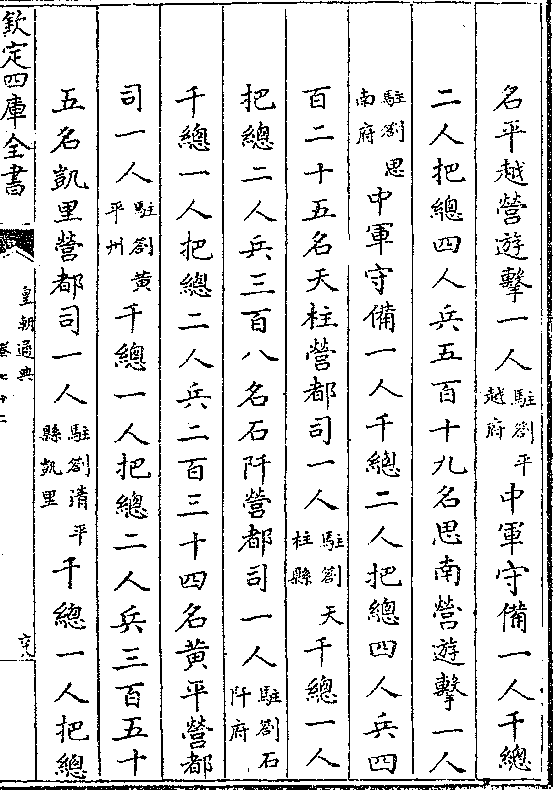 名平越營遊擊一人駐劄平越府中軍守備一人千總
二人把總四人兵五百十九名思南營遊擊一人
駐劄思南府中軍守備一人千總二人把總四人兵四
百二十五名天柱營都司一人駐劄天柱縣千總一人
把總二人兵三百八名石阡營都司一人駐劄石阡府
千總一人把總二人兵二百三十四名黃平營都
司一人駐劄黃平州千總一人把總二人兵三百五十
五名凱里營都司一人駐劄清平縣凱里千總一人把總
欽定四庫全書
皇朝通典